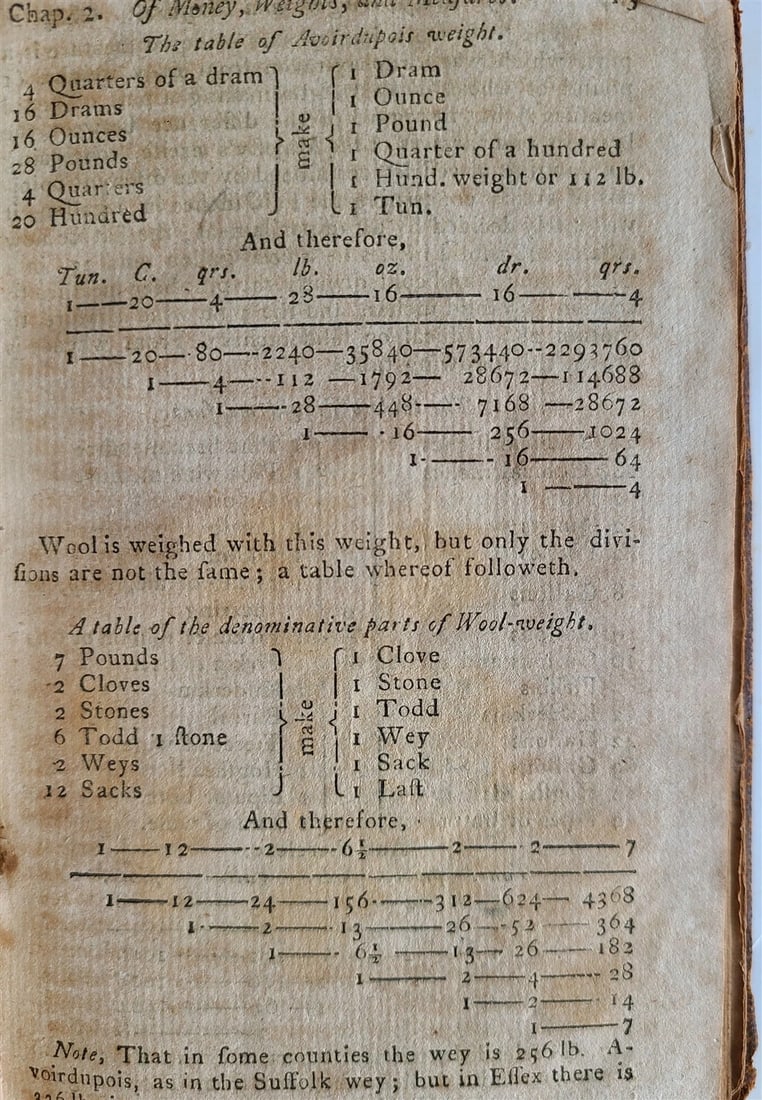 Chap. 2. Of Money, Weights, and Meaſures. 
The table of Avoirdupois weight.
4 Quarters of a dram } make { 1 Dram
16 Drams 1 Ounce
16 Ounces 1 Pound
28 Pounds 1 Quarter of a hundred
4 Quarters 1 Hund. weight or 112 lb.
20 Hundred 1 Tun.
And therefore,
Tun. C. qrs. lb. oz. dr. qrs.
1——20——4——28——16——16——4
1——20—80—2240—35840—573440--2293760
1——4—--112 —1792— 28672—114688
1——28——448—— 7168 —28672
1——16——256——1024
1——16——64
1——4
Wool is weighed with this weight, but only the divi-
ſions are not the ſame; a table whereof followeth.
A table of the denominative parts of Wool-weight.
7 Pounds } make { 1 Clove
2 Cloves 1 Stone
2 Stones 1 Todd
6 Todd 1 ſtone 1 Wey
2 Weys 1 Sack
12 Sacks 1 Laſt
And therefore,
1——12——2——6½——2——2——7
1——12——24——156——312—624—4368
1——2——13——26—52——364
1——6½——13—26——182
1——2——4——28
1——2——14
1——7
Note, That in ſome counties the wey is 256 lb. A-
voirdupois, as in the Suffolk wey; but in Eſſex there is
336 lb.